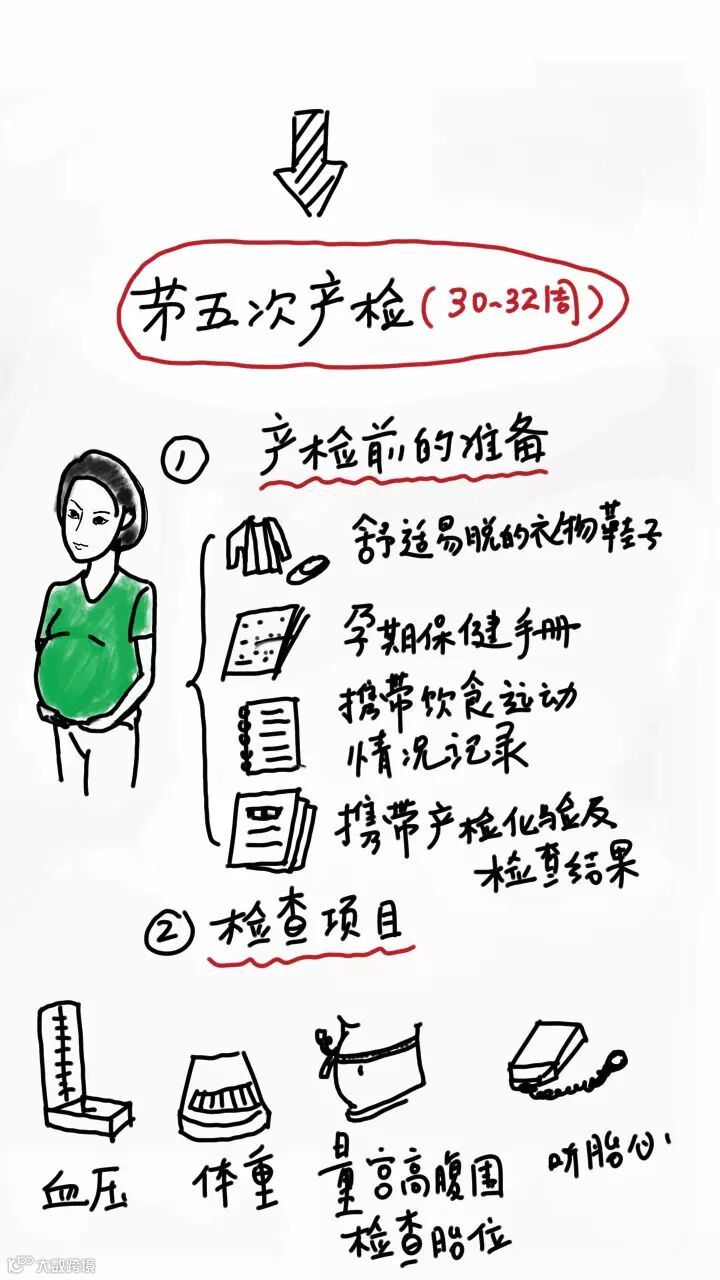 第五次产检(30-32周)
① 产检前的准备
舒适易脱的衣物鞋子
孕期保健手册
携带饮食运动
情况记录
携带产检化验及
检查结果
② 检查项目
血压
体重
量宫高腹围
检查胎位
听胎心
大数跨境